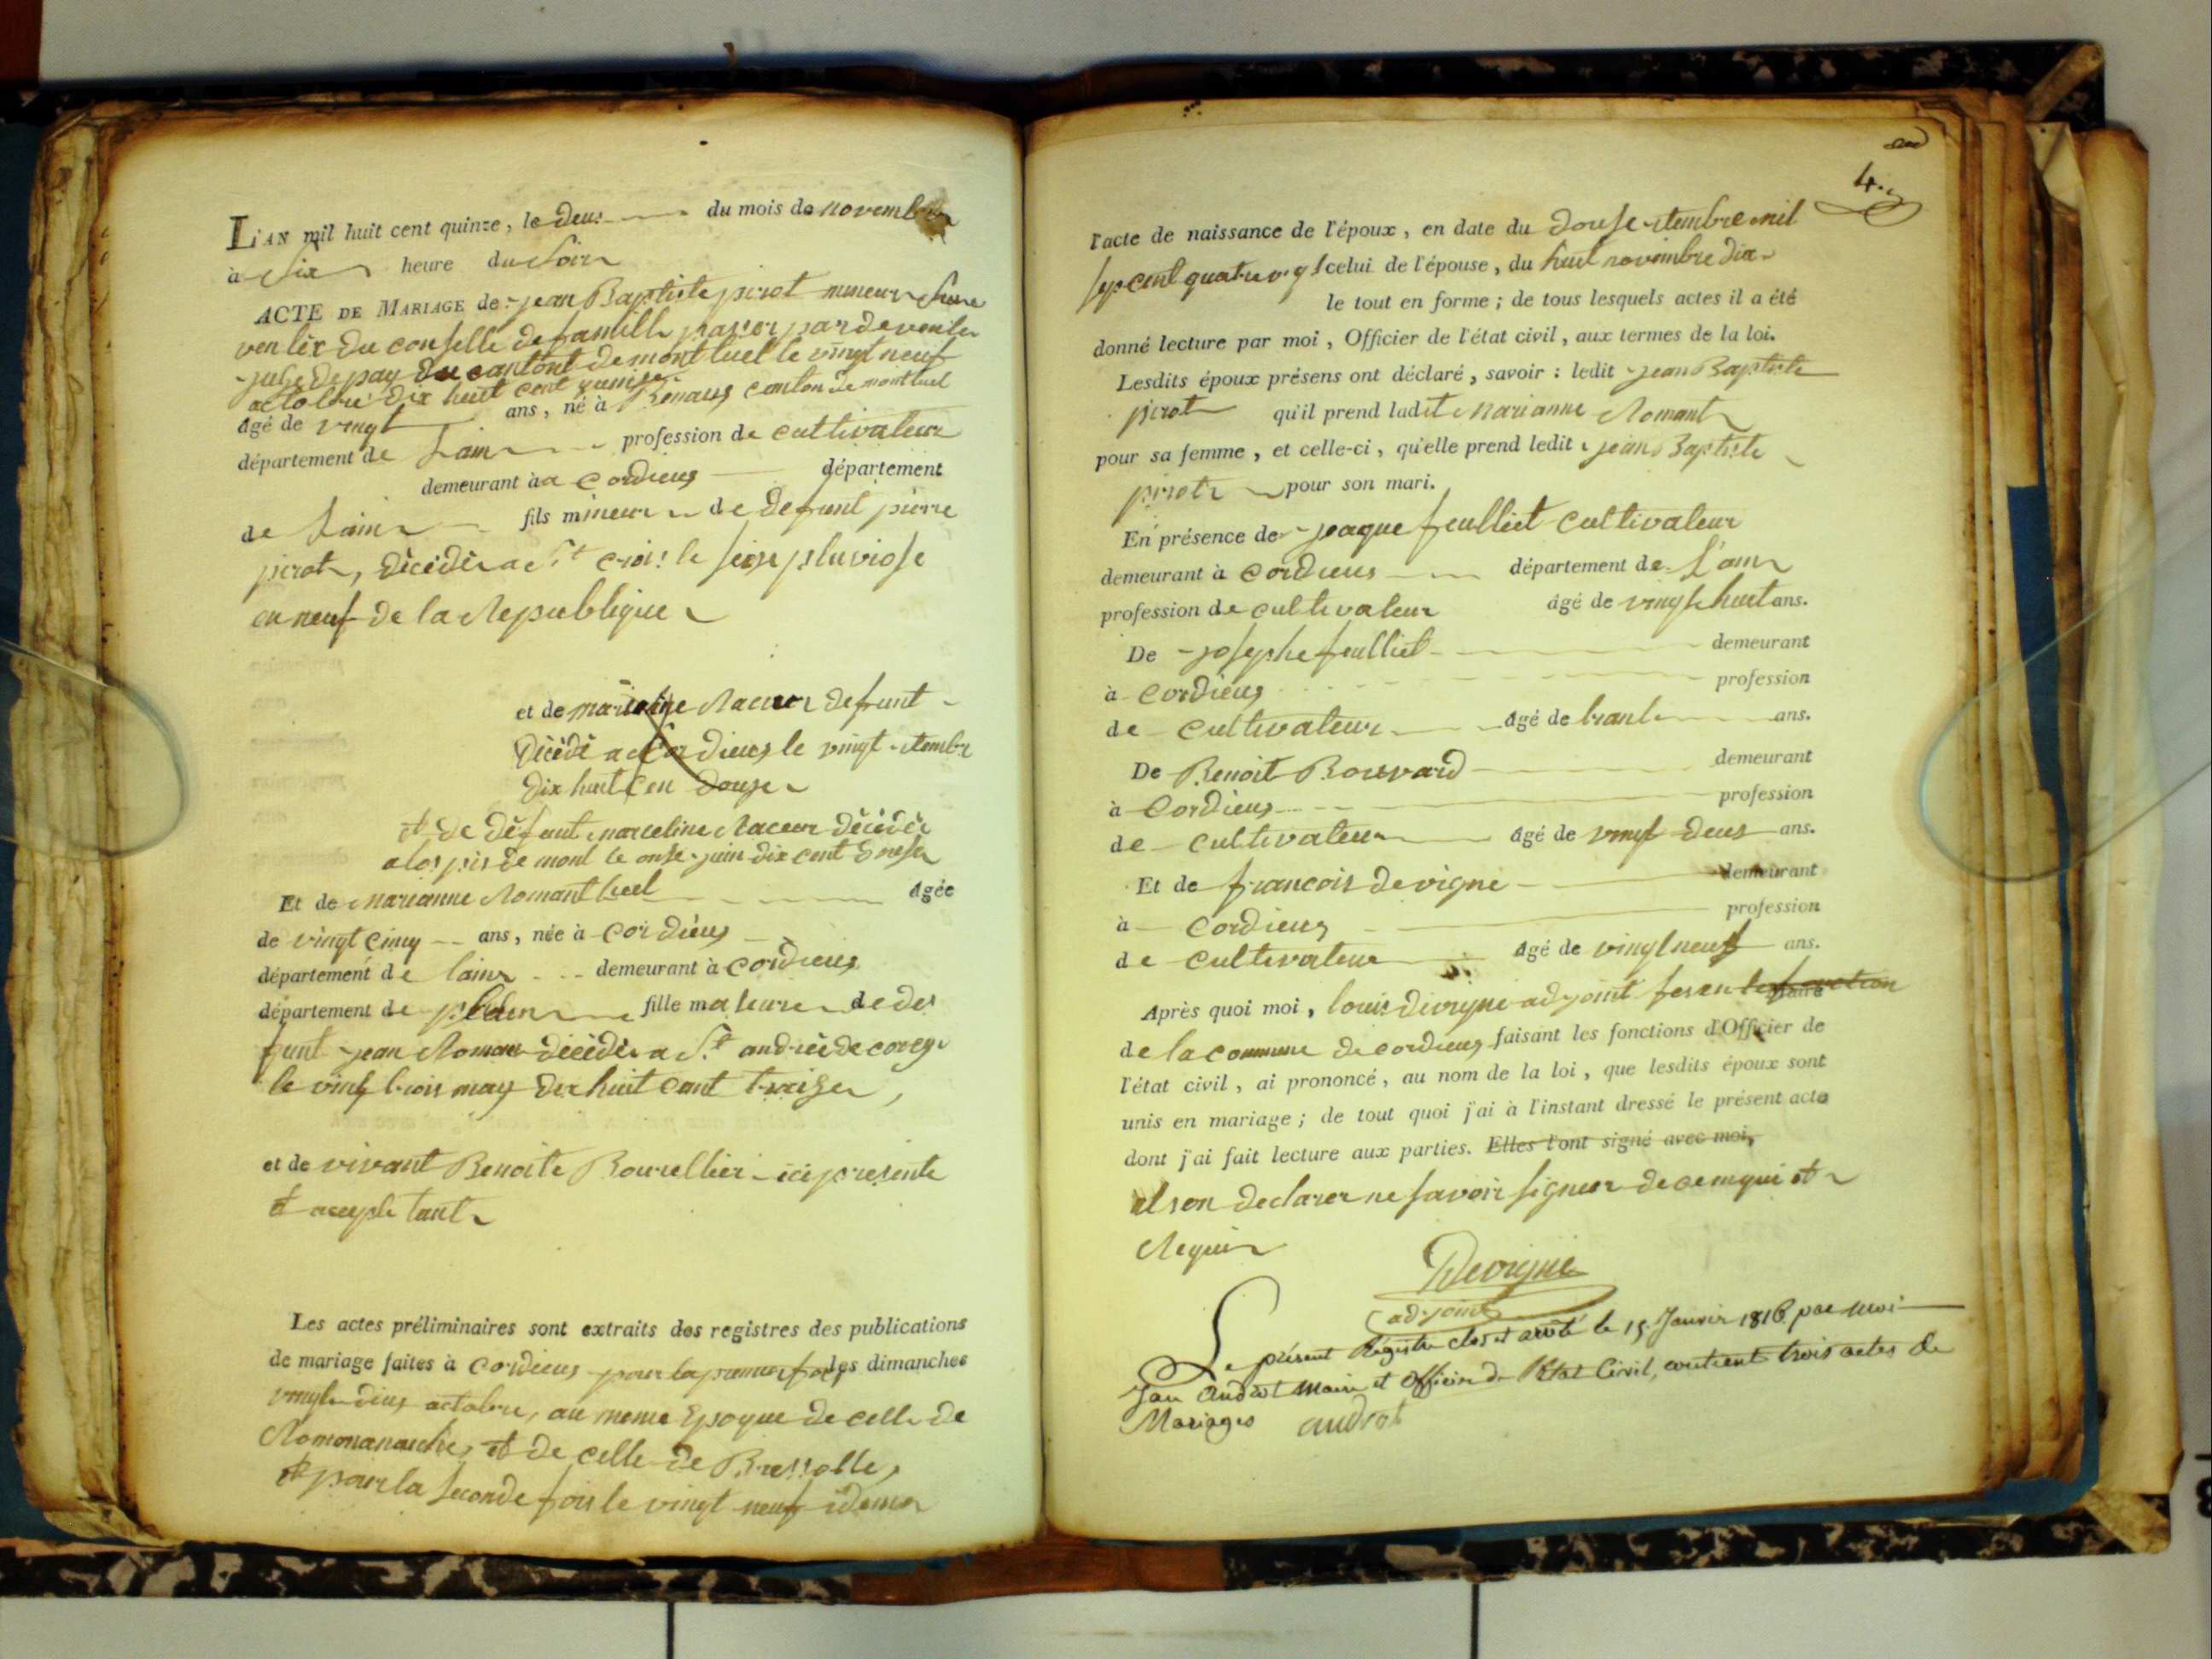 L'AN mil huit cent quinze, le deus du mois de novembre
à six heure du soir
ACTE DE MARIAGE de jean Baptiste pirot mineur
du conselle de famille passer par devent le
juge de pay du cantont de montluel le vingt neuf
octobre dix huit cent quinse
âgé de vingt ans, né à canton de montluel
département de Lain profession de cultivateur
demeurant àa Cordieus département
de Lain fils mineur de defunt pierre
pirot, décédé a St croi! le seise pluviose
en neuf de la Republique
et de Racuer defunt
décédé a Cordieus le vingt
dix huit cen douse
et de défunt marceline Raceur décédée
de mont le onse juin dix cent
Et de marianne Romant luel âgée
de vingt cinq ans, née à Cordieus
département de lain demeurant à Cordieus
département de fille majeure de de
funt jean Roman décédé a St andrée de corcy
le vingt trois may dix huit cent traize,
et de vivant Benoite Bourellier ici presente
et acceptetant
Les actes préliminaires sont extraits des registres des publications
de mariage faites à Cordieus pour la premier fois les dimanches
vingt deus octobre, au meme Epoque de celle de
et de celle de Bressolle,
et pour la seconde fois le vingt neuf idem
4.
l'acte de naissance de l'époux, en date du douse mil
sep cent quatre celui de l'épouse, du huit novembre dix
le tout en forme; de tous lesquels actes il a été
donné lecture par moi, Officier de l'état civil, aux termes de la loi.
Lesdits époux présens ont déclaré, savoir: ledit jean Baptiste
pirot qu'il prend ladit marianne Romant
pour sa femme, et celle-ci, qu'elle prend ledit jean Baptiste
pirot pour son mari.
En présence de jaque feulliet cultivateur
demeurant à Cordieus département de L'ain
profession de cultivateur âgé de vingt huit ans.
De josephe feulliet demeurant
à Cordieus profession
de Cultivateur âgé de trante ans.
De Benoit Bouvard demeurant
à Cordieus profession
de Cultivateur âgé de vingt deus ans.
Et de francois devigne demeurant
à Cordieus profession
de Cultivateur âgé de vingt neuf ans.
Après quoi moi, louis divigne adjoint fesen le fonction maire
de la commune de cordieus faisant les fonctions d'Officier de
l'état civil, ai prononcé, au nom de la loi, que lesdits époux sont
unis en mariage; de tout quoi j'ai à l'instant dressé le présent acte
dont j'ai fait lecture aux parties. Elles l'ont signé avec moi,
et son declarer ne savoir signer de ce enqui et
Requi
Devigne
adjoint
Le présent Régistre clos et arrêté le 15 Janvier 1816 par moi
Jan Audrot Maire et officier de l'Etat Civil, contient trois actes de
Mariages audrot